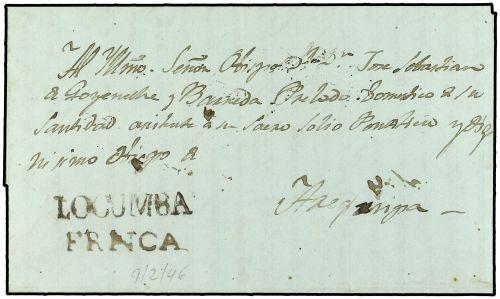 Al Yllmo. Señor Obispo Dor. Dn. Jose Sebastian
de Goyeneche y Barreda Prelado Domestico de su
Santidad asistente a su Sacro Solio Pontificio y Dig
nisimo Obispo de
Arequipa
LOCUMBA
FRNCA
9/2/46